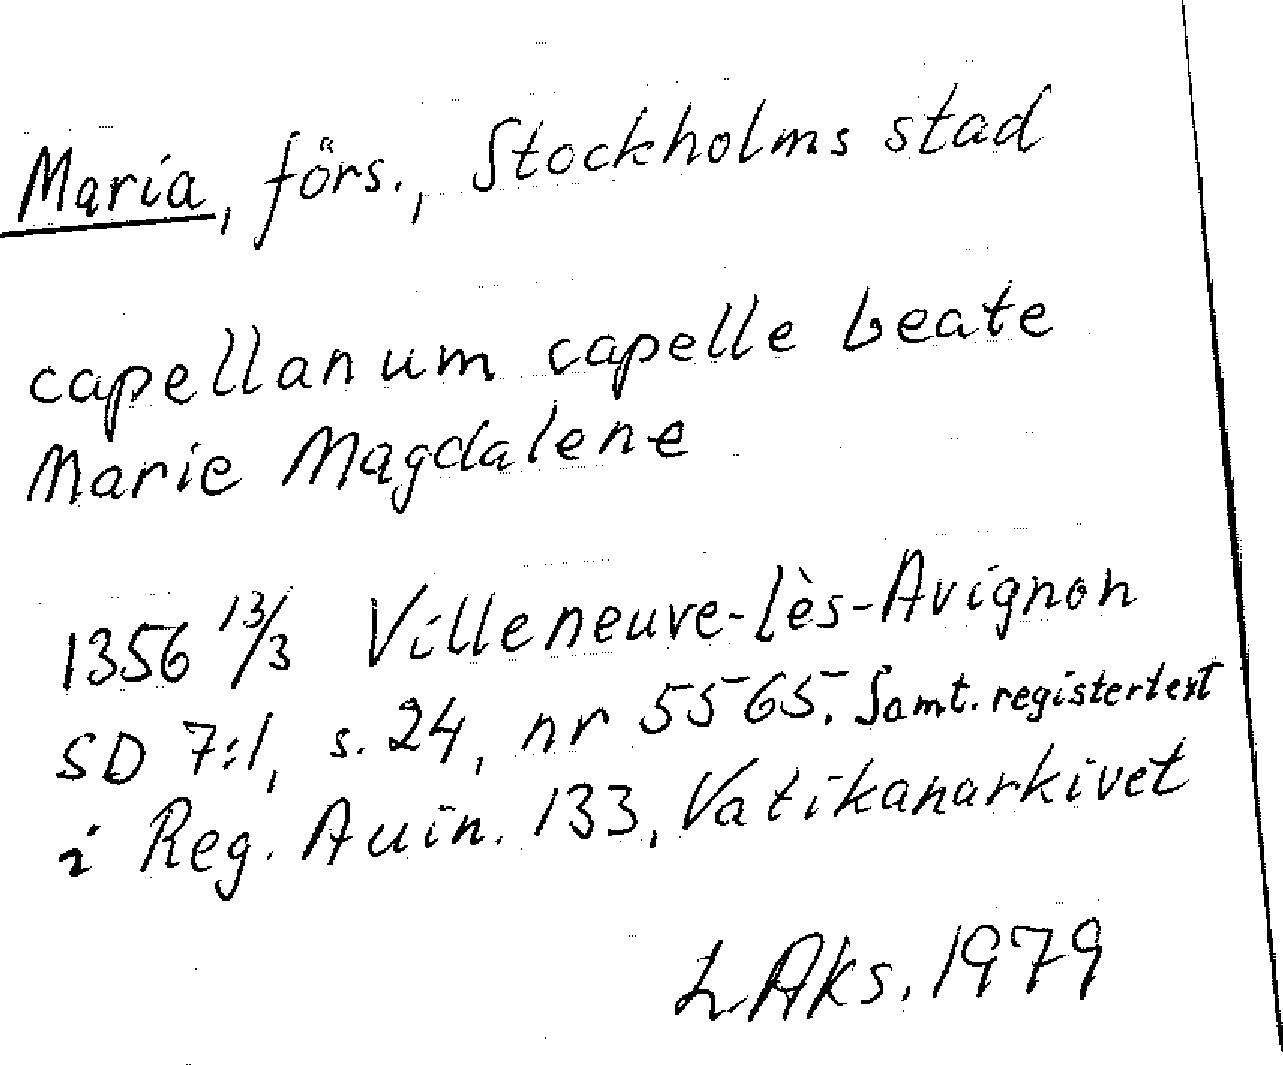 Maria, förs., Stockholms stad
capellanum capelle beate
Marie Magdalene
1356 13/3 Villeneuve-lès-Avignon
SD 7:1, s. 24, nr 5565. Samt. registertext
i Reg. Auin. 133, Vatikanarkivet
LAks. 1979